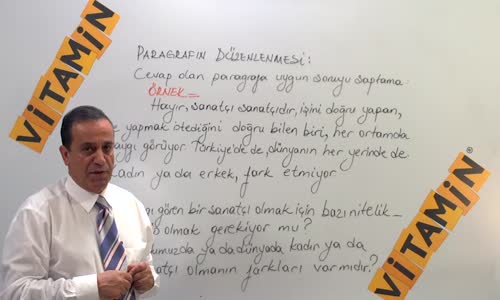 VİTAMİN
PARAGRAFIN DÜZENLENMESİ:
Cevap olan paragrafa uygun soruyu saptama:
ÖRNEK
Hayır, sanatçı sanatçıdır, işini doğru yapan,
yapmak istediğini doğru bilen biri, her ortamda
görüyor. Türkiye'de de, dünyanın her yerinde de
kadın ya da erkek, fark etmiyor.
gören bir sanatçı olmak için bazı nitelik-
olmak gerekiyor mu?
ya da dünyada kadın ya da
olmanın farkları var mıdır?
VİTAMİN
®